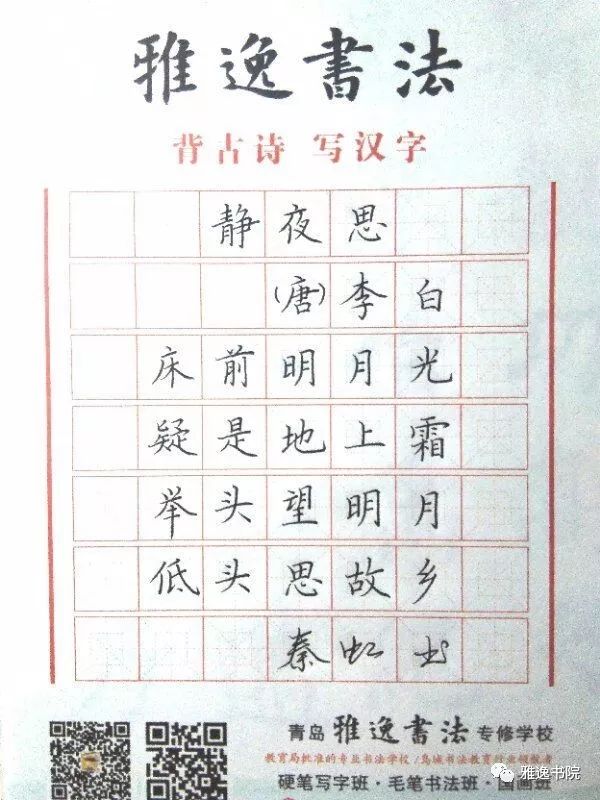 雅逸書法
背古诗 写汉字
静夜思
(唐)李白
床前明月光
疑是地上霜
举头望明月
低头思故乡
秦虹书
青岛 雅逸書法 专修学校
教育局批准的专业书法学校/岛城书法教育行业领航者
硬笔写字班·毛笔书法班·国画班
雅逸书院